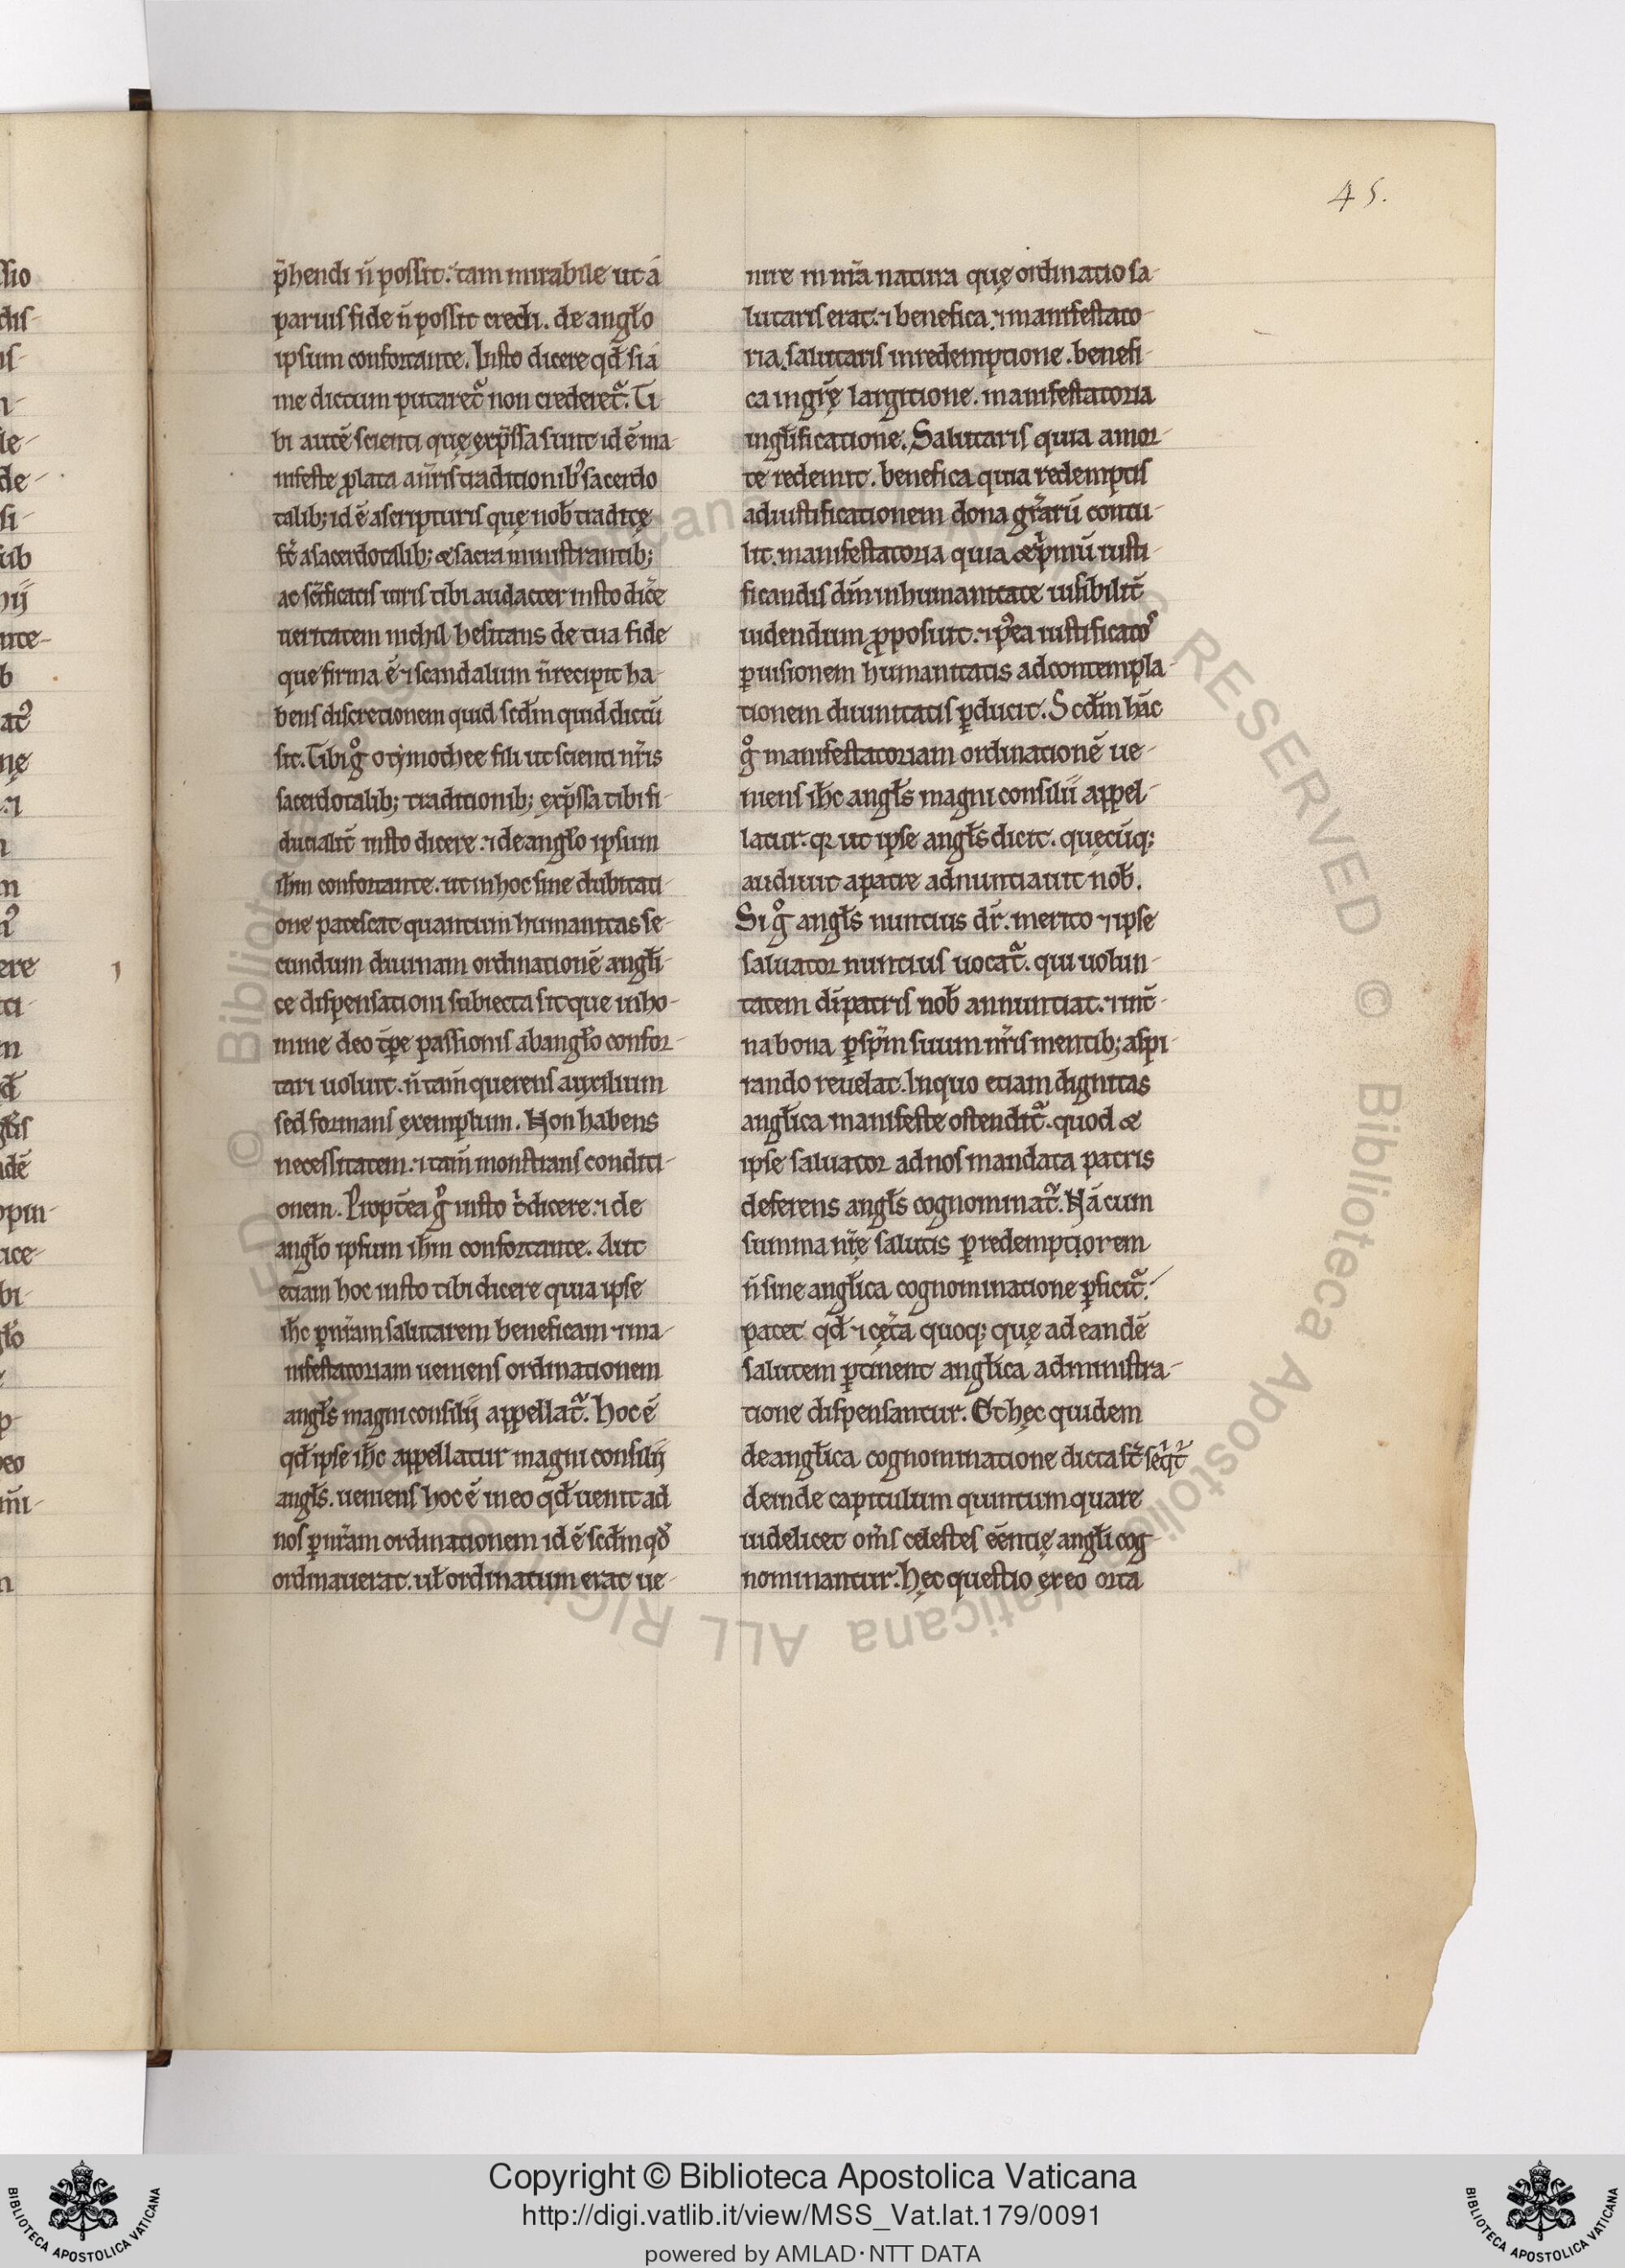 45.
p̄hendi n̄ possit. tam mirabile ut á
paruis fide n̄ possit credi. de angło
ipsum confortante. Iusto dicere qđ si á
me dictum putaret᷑ non crederet᷑. Ti
bi autē scienti quę exp̄ssa sunt id ē ma-
nifeste ꝓlata a nr̄is traditionibꝰ sacerdo
talib; id ē a scripturis quę nob̄ traditę
st̄ a sacerdotalib; & sacra ministrantib;
ac sc̄ificatis uiris tibi audacter insto dic̄e
ueritatem nichil hesitans de tua fide
que firma ē ⁊ scandalum n̄ recipit ha-
bens discretionem quid scd̄m quid dictū
sit. Tibi gͦ o tymothee fili ut scienti nr̄is
sacerdotalib; traditionib; exp̄ssa tibi fi-
ducialit̄ insto dicere. ⁊ de angło ipsum
ih̄m confortante. ut in hoc sine dubitati-
one patescat quantum humanitas se-
cundum diuinam ordinationē angłi-
ce dispensationi subiecta sit que in ho-
mine deo t̄pe passionis ab angło confor-
tari uoluit. n̄ tam̄ querens auxilium
sed formans exemplum. Non habens
necessitatem. ⁊ tam̄ monstrans conditi-
onem. Propt̄ea gͦ insto t̄ dicere. ⁊ de
angło ipsum ih̄m confortante. Aut
etiam hoc insto tibi dicere quia ipse
ih̄c ꝑ nr̄am salutarem beneficam ⁊ ma-
nifestatoriam ueniens ordinationem
angłs magni consilij appellat᷑. hoc ē
qđ ipse ih̄c appellatur magni consilij
angłs. ueniens hoc ē in eo qđ uenit ad
nos ꝑ nr̄am ordinationem id ē scd̄m qđ
ordinauerat. uł ordinatum erat ue-
nire in nr̄a natura quę ordinatio sa-
lutaris erat. ⁊ benefica. ⁊ manifestato-
ria. salutaris in redemptione. benefi-
ca in gr̄ę largitione. manifestatoria
in głificatione. Salutaris quia a mor-
te redemit. benefica quia redemptis
ad iustificationem dona gr̄arū contu-
lit. manifestatoria quia & p̄mū iusti-
ficandis dm̄ in humanitate uisibilit̄
uidendum ꝓposuit. ⁊ pꝰea iustificatoˢ
ꝑ uisionem humanitatis ad contempla-
tionem diuinitatis ꝑducit. Scd̄m hāc
gͦ manifestatoriam ordinationē ue-
niens ih̄c angłs magni consilii appel-
latur. qꝛ ut ipse angłs dicit. quęcūq;
audiuit a patre adnuntiauit nob̄.
Si gͦ angłs nuncius dr̄. merito ⁊ ipse
saluator nuncius uocat᷑. qui uolun-
tatem dī patris nob̄ annuntiat. ⁊ int̄-
na bona ꝑ sp̄m suum nr̄is mentib; aspi-
rando reuelat. In quo etiam dignitas
angłica manifeste ostendit᷑. quod &
ipse saluator ad nos mandata patris
deferens angłs cognominat᷑. Nā cum
summa nr̄ę salutis ꝑ redemptiorem
n̄ sine angłica cognominatione ꝑficit᷑.
patet qđ ⁊ cęt̄a quoq; quę ad eandē
salutem ꝑtinent angłica administra-
tione dispensantur. Et hęc quidem
de angłica cognominatione dicta st̄ seq̄t᷑
deinde capitulum quintum quare
uidelicet om̄s celestes eēntię angłi cog-
nominantur. hęc questio ex eo orta
Copyright © Biblioteca Apostolica Vaticana
http://digi.vatlib.it/view/MSS_Vat.lat.179/0091
powered by AMLAD·NTT DATA